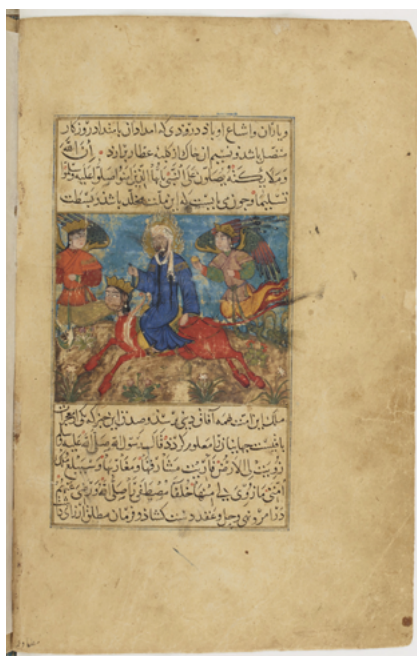 و یاران و اشیاع او باد درودی که امداد آن بامتداد روزگار
متصل باشد و نسیم ان خاک از کلبه عطار برارد ان الله
وملائکته یصلون علی النبی یا ایها الذین امنوا صلوا علیه وسلموا
تسلیما و چون می بایست که این ملت مخلد باشد و بسطت
ملک این امت بهمه آفاق دنیی برسد و صدق این خبر که یکی از
باقیست جهانیان را معلوم گردد قال رسول الله صلی الله علیه
زویت لی الارض فاریت مشارقها و مغاربها و سیبلغ ملک
امتی ما زوی لی منها خلفاء مصطفی را صلی الله و رضی عنهم
در امر و نهی و حل و عقد دست کشاد و فرمان مطلق ارزانی